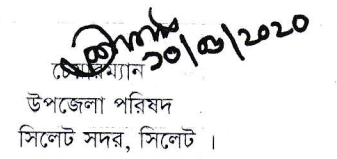 ১০/০৩/২০২০
চেয়ারম্যান
উপজেলা পরিষদ
সিলেট সদর, সিলেট ।